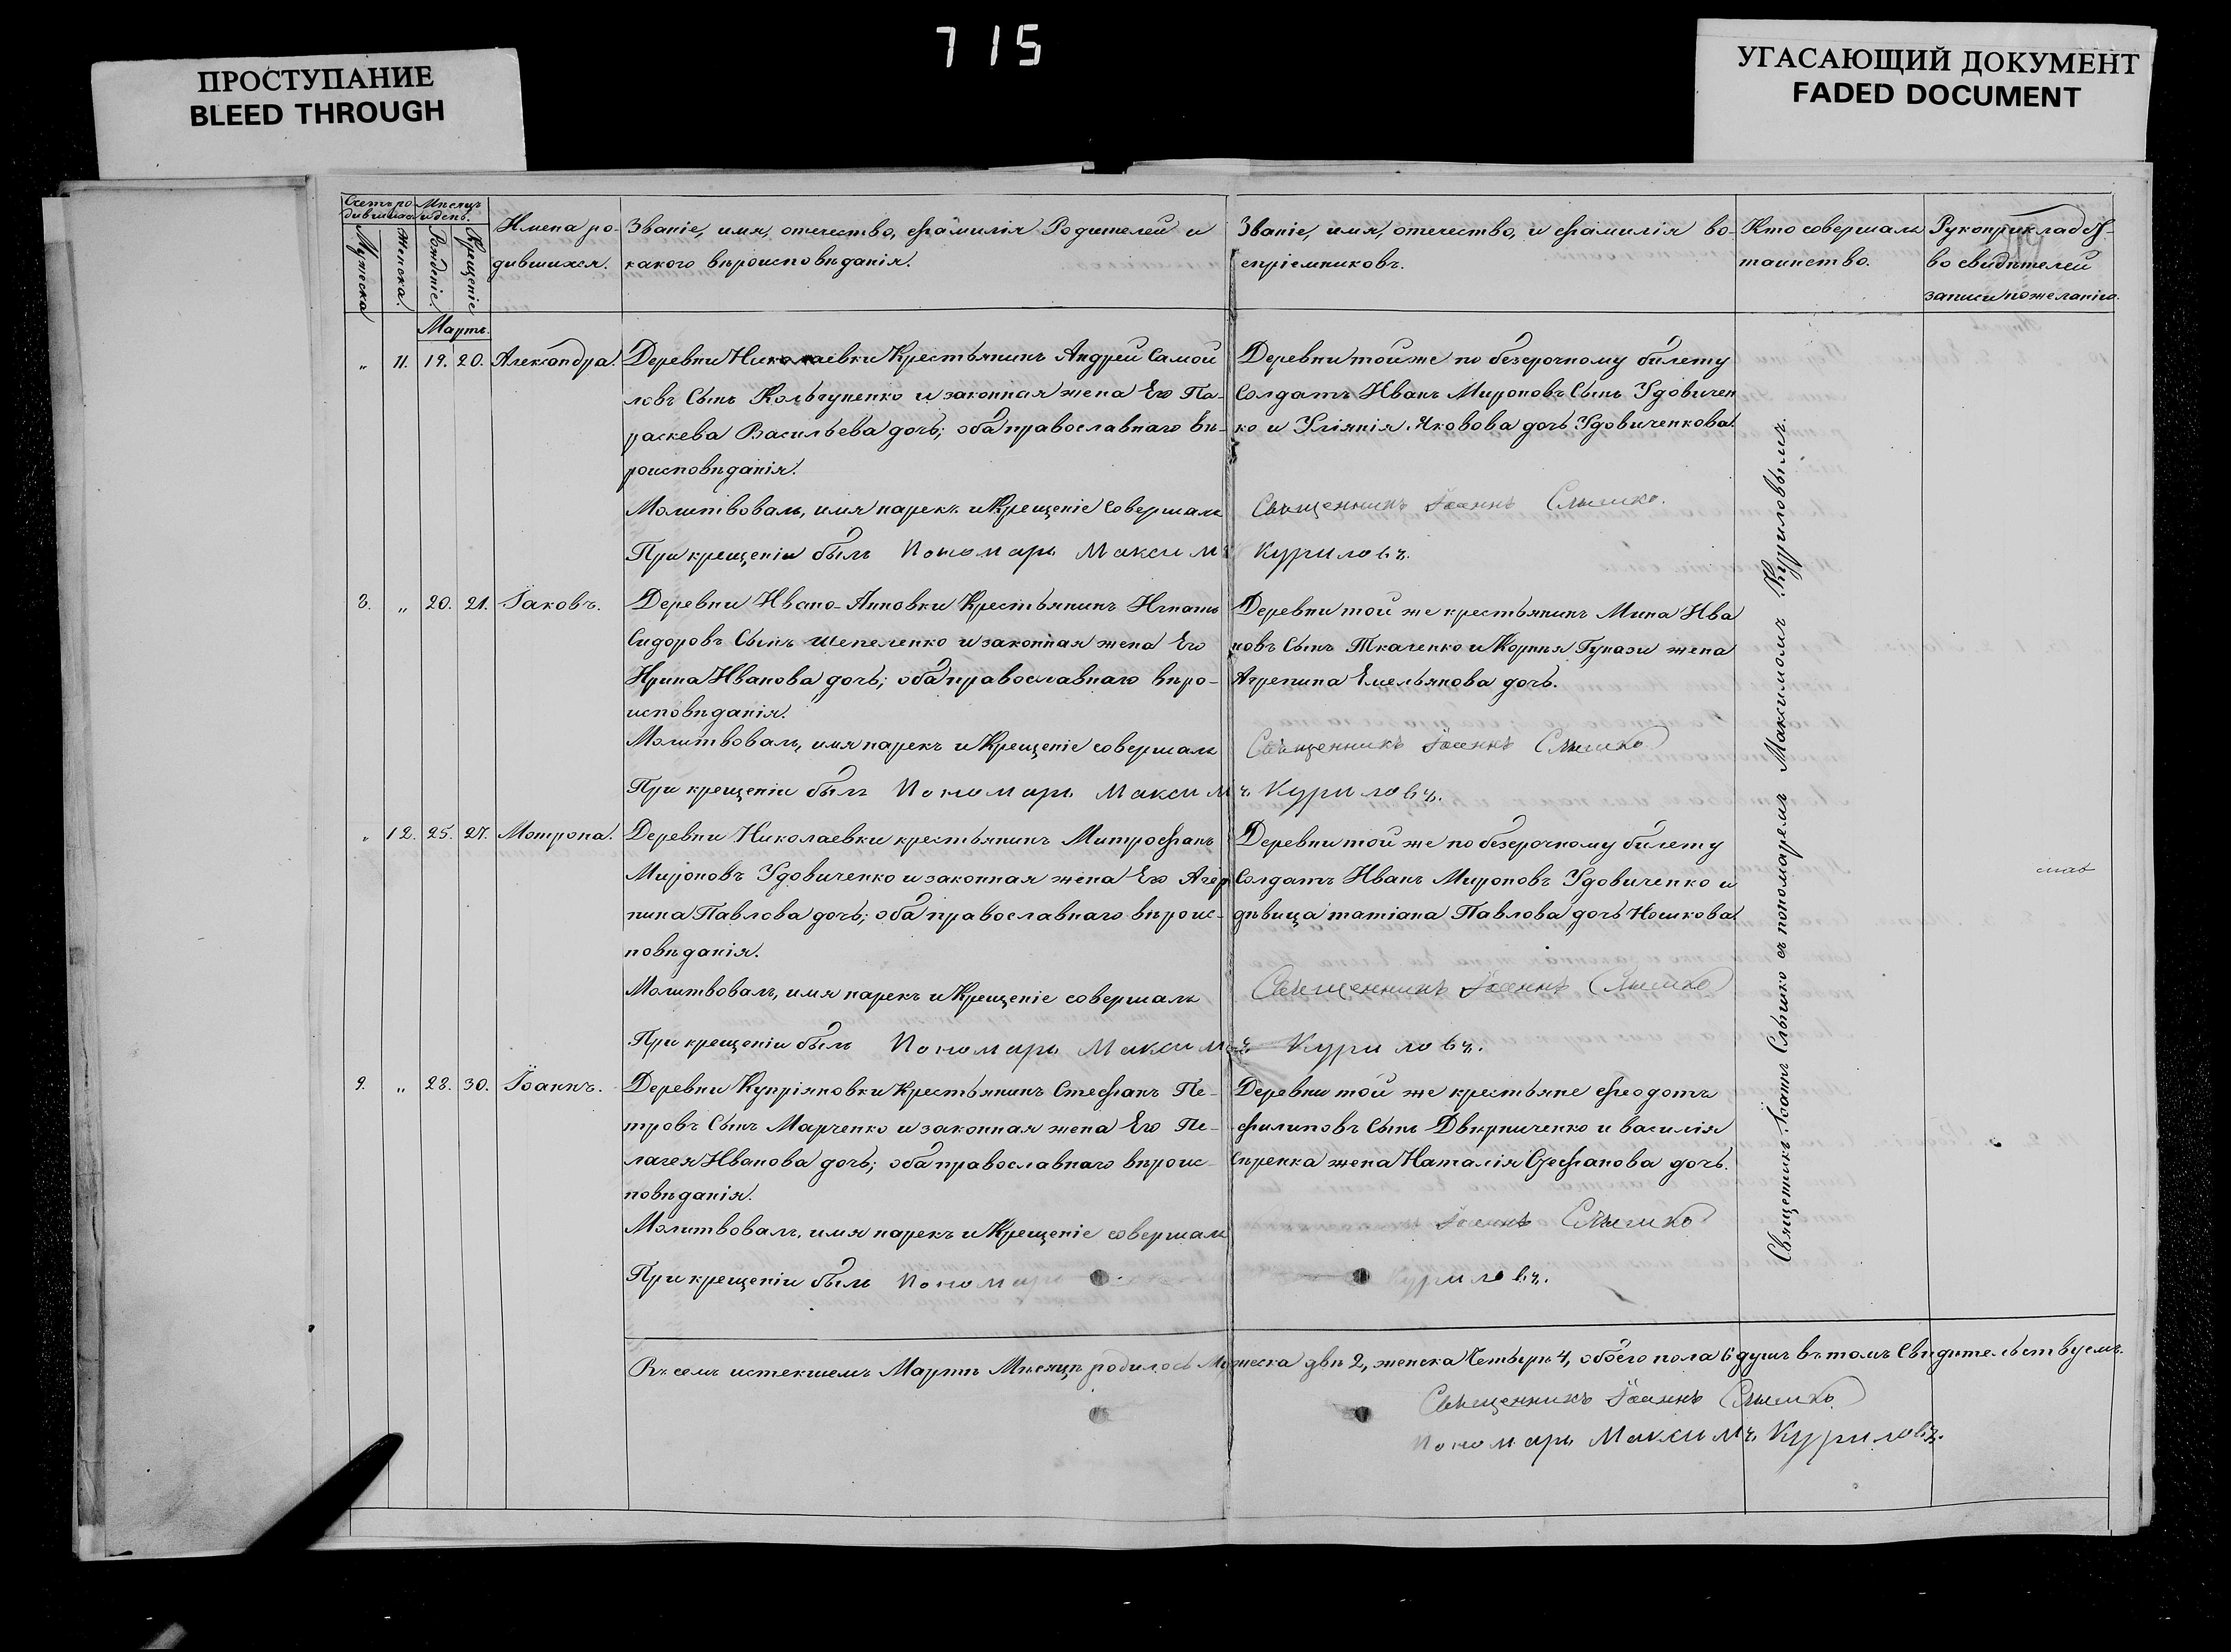 715
ПРОСТУПАНИЕ
BLEED THROUGH
УГАСАЮЩИЙ ДОКУМЕНТ
FADED DOCUMENT
Счетъ ро-
дившихся
Мѣсяцъ
и день.
Мужеска
Женска.
Рожденіе.
Крещеніе
Имена ро-
дившихся.
Званіе, имя, отечество, фамилія Родителей и
какого вѣроисповѣданія.
Званіе, имя, отечество, и фамилія во-
спріемниковъ.
Кто совершалъ
таинство.
Рукоприкладс
во свидѣтелей
записи по желанію.
Мартъ.
„ 11. 19. 20. Александра.
Деревни Николаевки Крестьянинъ Андрей Самой
ловъ Сынъ Кольчуненко и законная жена Его Па-
раскева Васильева дочь; оба православнаго вѣ-
роисповѣданія.
Молитвовалъ, имя нарекъ и Крещеніе Совершалъ
При крещеніи былъ Пономарь Максимъ
Деревни той же по безсрочному билету
Солдатъ Иванъ Мироновъ Сынъ Удовичен
ко и Уліянія Яковова дочь Удовиченкова
Священникъ Іоаннъ Слышко.
Куриловъ.
8. „ 20. 21. Іаковъ.
Деревни Ивано-Анновки Крестьянинъ Игнатъ
Сидоровъ Сынъ Шепеленко и законная жена Его
Ирина Иванова дочь; оба православнаго вѣро-
исповѣданія.
Молитвовалъ, имя нарекъ и Крещеніе совершалъ
При крещеніи былъ Пономарь Максим
Деревни той же крестьянинъ Мина Ива
новъ Сынъ Ткаченко и Корнія Гунази жена
Агрепина Емельянова дочь.
Священникъ Іоаннъ Слышко
ъ Куриловъ.
„ 12. 25. 27. Мотрона.
Деревни Николаевки крестьянинъ Митрофанъ
Мироновъ Удовиченко и законная жена Его Агер
пина Павлова дочь; оба православнаго вѣроис-
повѣданія.
Молитвовалъ, имя нарекъ и Крещеніе совершалъ
При крещеніи былъ Пономарь Максим
Деревни той же по безсрочному билету
Солдатъ Иванъ Мироновъ Удовиченко и
дѣвица татіана Павлова дочь Ношкова
Священникъ Іоаннъ Слышко
ъ Куриловъ.
9. „ 28. 30. Іоаннъ.
Деревни Купріяновки Крестьянинъ Стефанъ Пе-
тровъ Сынъ Марченко и законная жена Его Пе-
лагея Иванова дочь; оба православнаго вѣроис-
повѣданія.
Молитвовалъ, имя нарекъ и Крещеніе совершалъ
При крещеніи былъ Пономарь
Деревни той же крестьяне феодотъ
филиповъ Сынъ Двирниченко и василія
Сѣренка жена Наталія Стефанова дочь.
Іоаннъ Слышко
Куриловъ.
Священникъ Іоаннъ Слышко съ пономаремъ Максимомъ Куриловымъ.
Въ семъ истекшемъ Мартѣ Мѣсяцѣ родилось Мужеска двѣ 2, женска Четырѣ 4, обоего пола 6 душъ въ томъ Свидѣтельствуемъ.
Священникъ Іоаннъ Слышко.
Пономарь Максимъ Куриловъ.